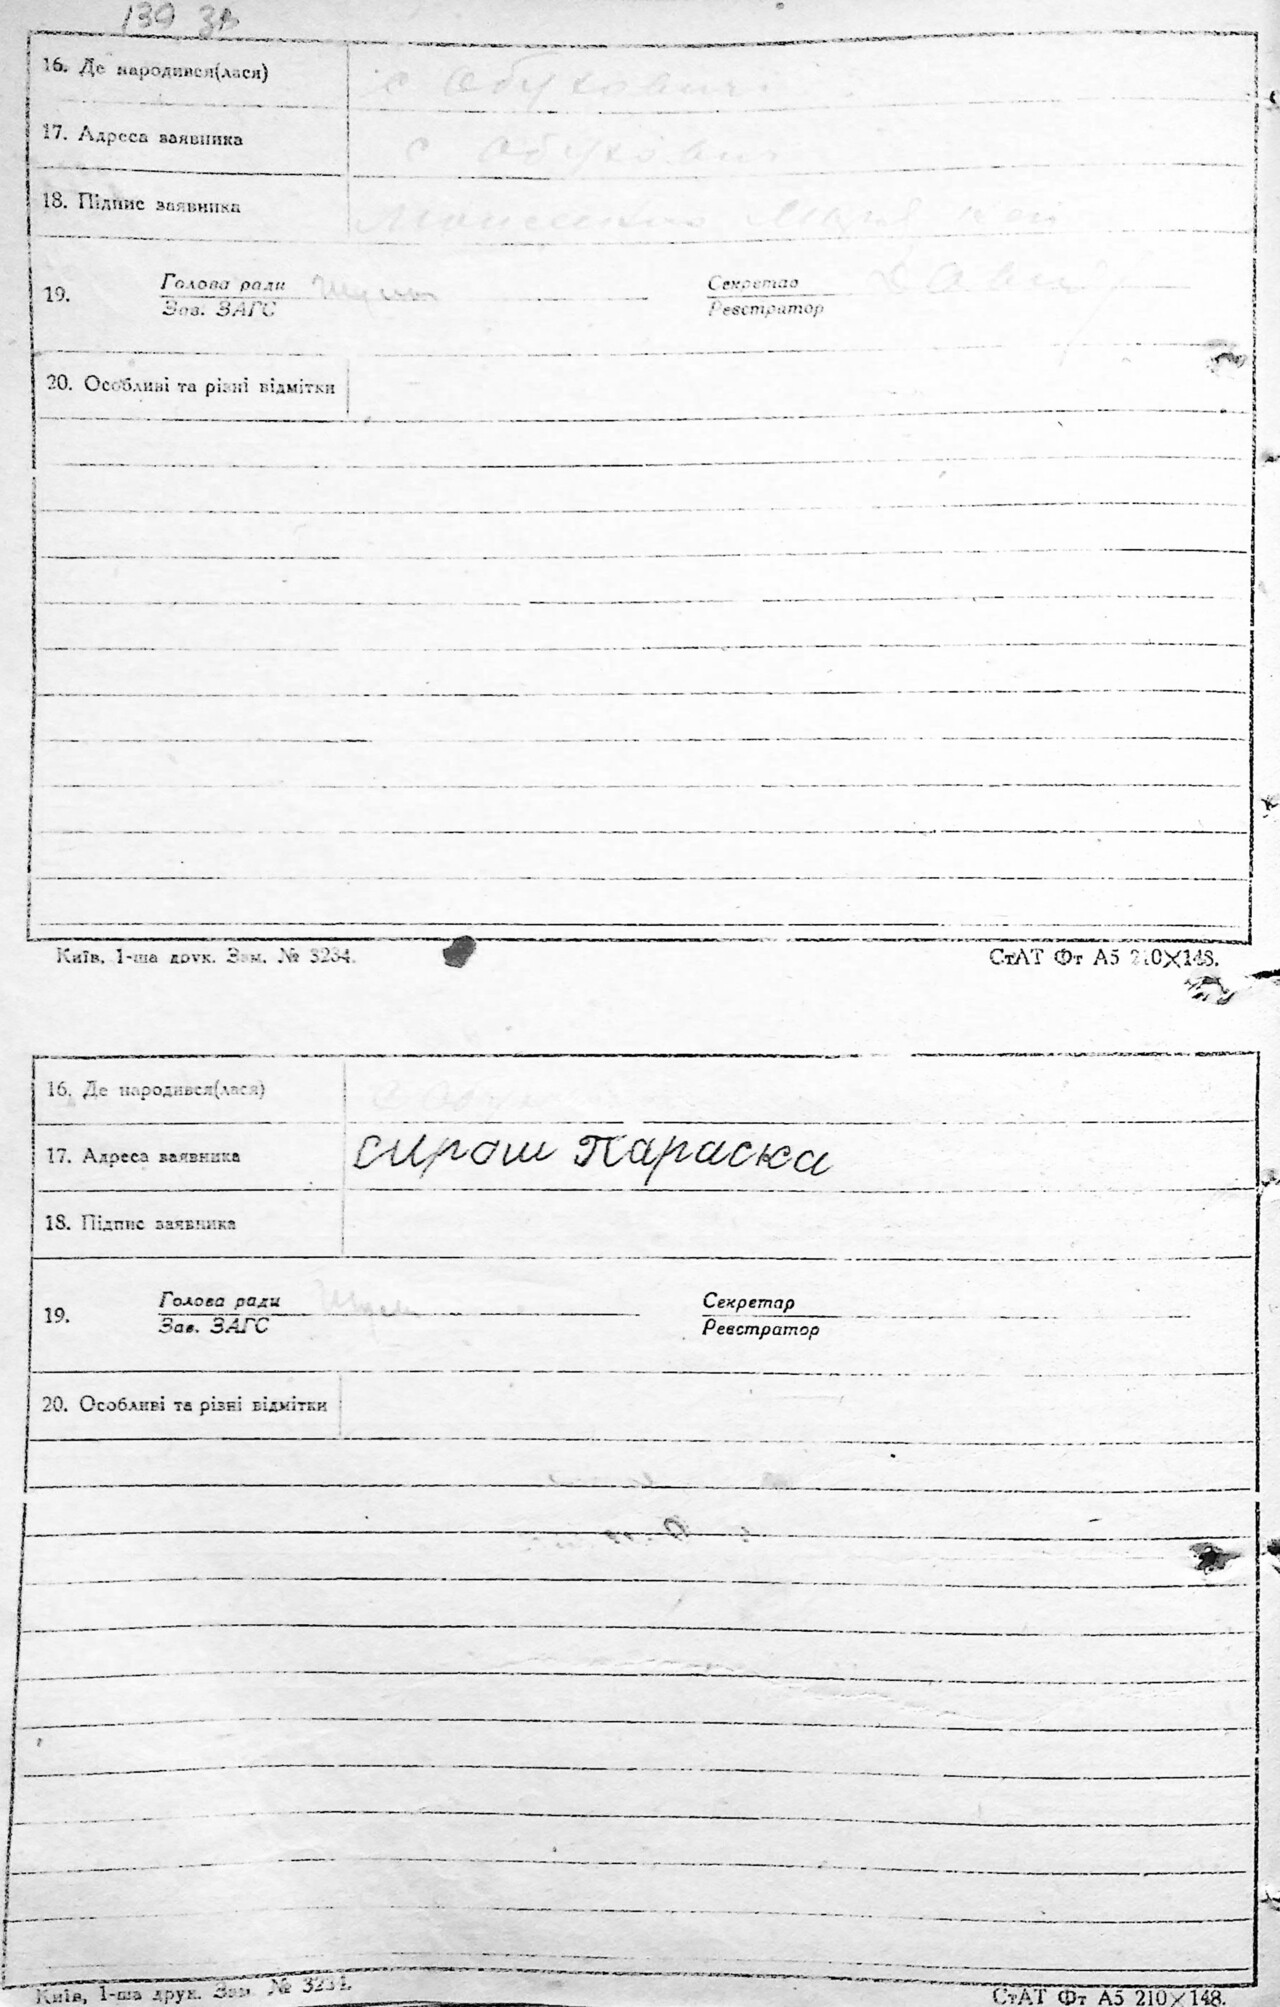 139 зв
16. Де народився(лася) с Обуховичі
17. Адреса заявника с Обуховичі
18. Підпис заявника
19. Голова ради Секретар
Зав. ЗАГС Реєстратор
20. Особливі та різні відмітки
Київ, 1-ша друк. Зам. № 3234. СтАТ Фт А5 210×148.
16. Де народився(лася)
17. Адреса заявника сирош Параска
18. Підпис заявника
19. Голова ради Секретар
Зав. ЗАГС Реєстратор
20. Особливі та різні відмітки
Київ, 1-ша друк. Зам. № 3234. СтАТ Фт А5 210×148.